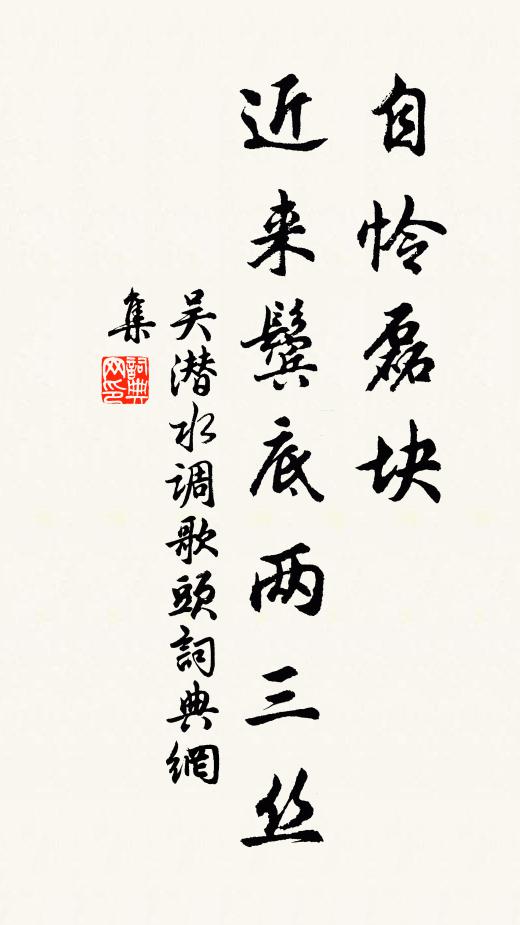 自怜磊块
近来鬓底两三丝
吴潜水调歌頭詞典網
集
詞典网印